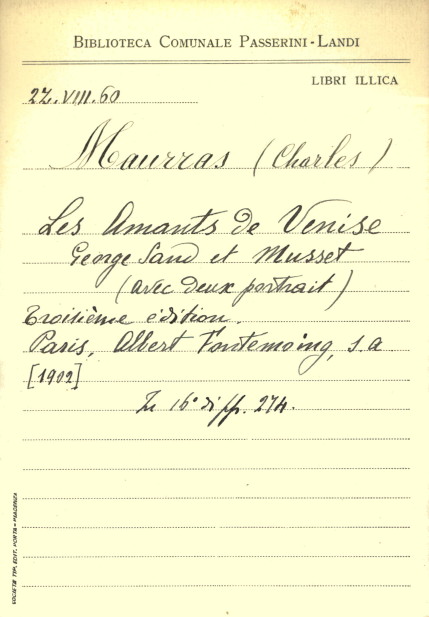 BIBLIOTECA COMUNALE PASSERINI-LANDI
LIBRI ILLICA
2Z.VIII.60
Maurras (Charles)
Les Amants de Venise
George Sand et Musset
(avec deux portrait)
Troisième édition.
Paris, Albert Fontemoing, s.a
[1902]
In 16° di pp. 274.
SOCIETÀ TIP. EDIT. PORTA - PIACENZA